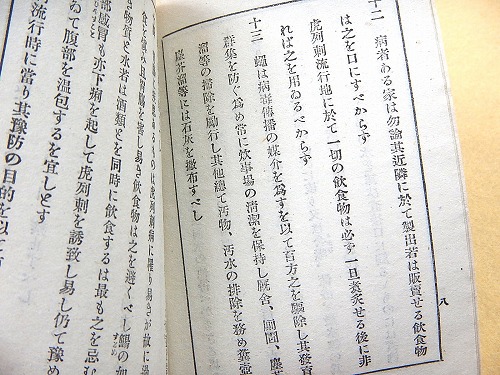 十二　病者ある家は勿論其近隣に於て製出若は販賣せる飲食物
は之を口にすべからす
虎列刺流行地に於て一切の飲食物は必ず一旦煮炙せる後に非
れば之を用ゐるべからす
十三　蠅は病毒傳播の媒介を爲すを以て百方之を驅除し其發育
群集を防ぐ爲め常に炊事場の清潔を保持し厩舍、圊圂、塵
溜等の掃除を勵行し其他總て汚物、汚水の排除を務め糞壺
塵芥溜等には石灰を撒布すべし
八
食を愼み且胃腸を害し易き飲食物は之を避くべし
物質と水若は酒類とを同時に飲食するは最も之を忌む
部感冒も亦下痢を起して虎列刺を誘致し易し仍て豫め
ゐて腹部を溫包するを宜しとす
流行時に當り其豫防の目的を以て